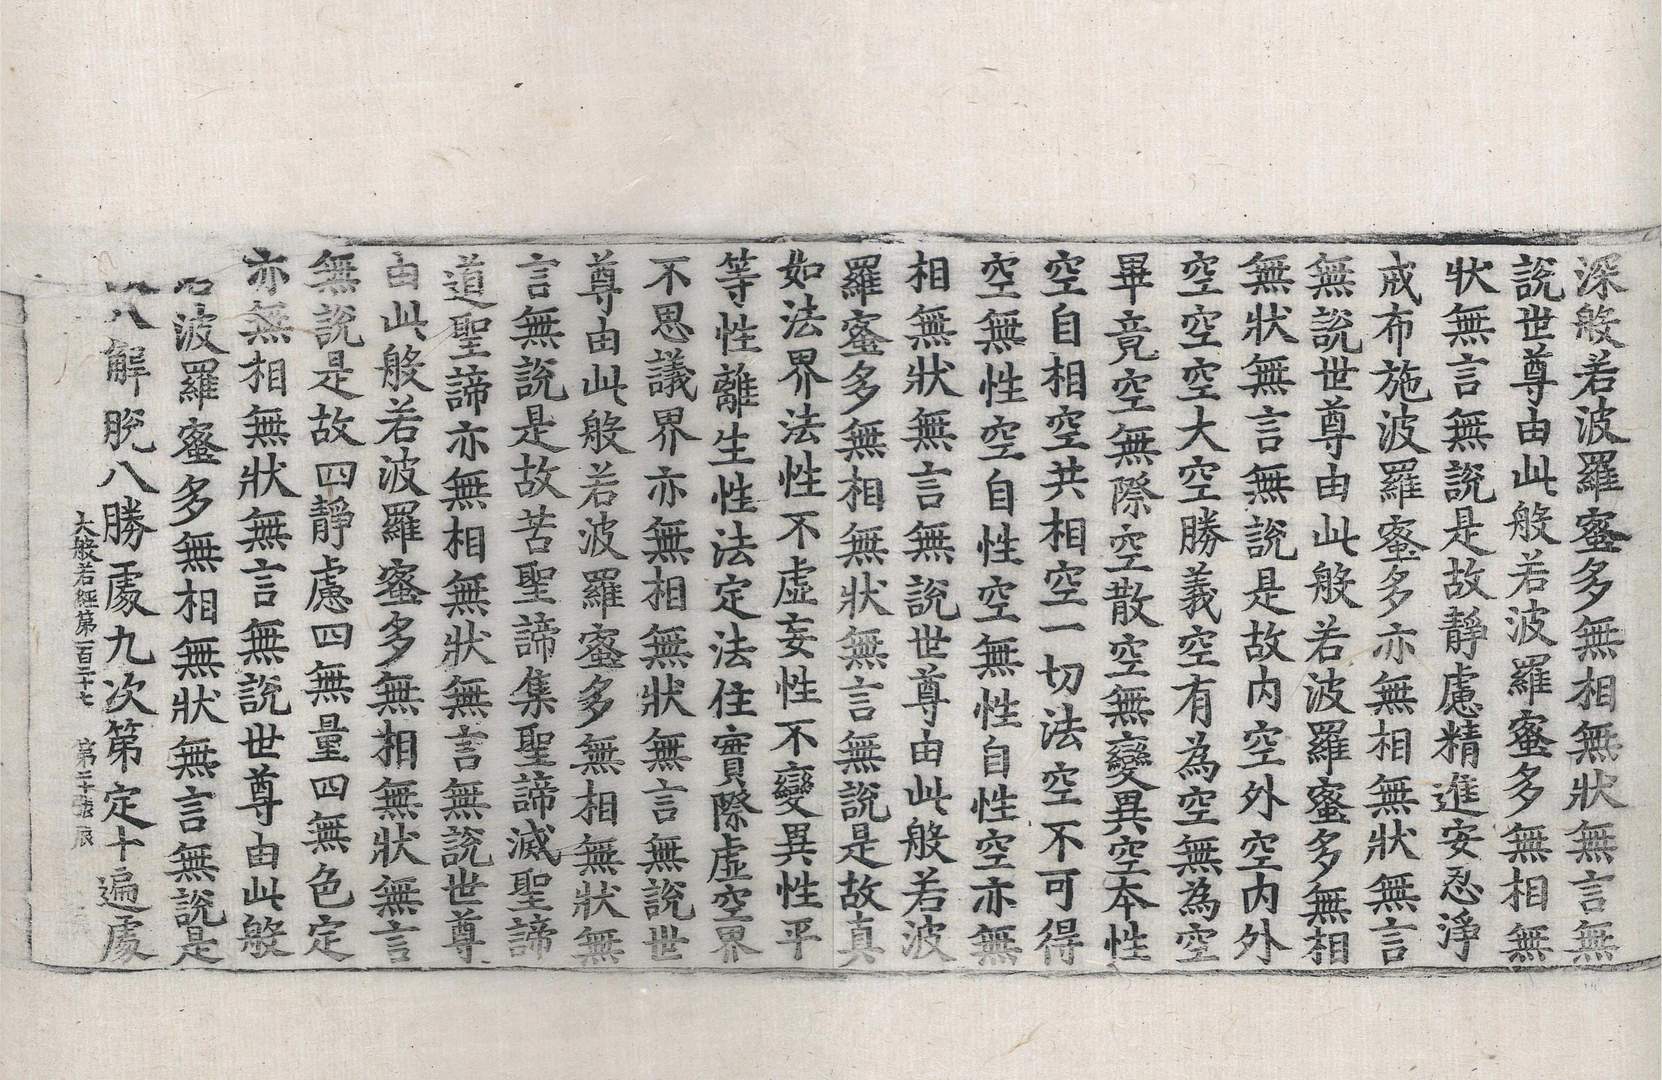 深般若波羅蜜多無相無狀無言無
說世尊由此般若波羅蜜多無相無
狀無言無說是故靜慮精進安忍淨
戒布施波羅蜜多亦無相無狀無言
無說世尊由此般若波羅蜜多無相
無狀無言無說是故內空外空內外
空空空大空勝義空有為空無為空
畢竟空無際空散空無變異空本性
空自相空共相空一切法空不可得
空無性空自性空無性自性空亦無
相無狀無言無說世尊由此般若波
羅蜜多無相無狀無言無說是故真
如法界法性不虛妄性不變異性平
等性離生性法定法住實際虛空界
不思議界亦無相無狀無言無說世
尊由此般若波羅蜜多無相無狀無
言無說是故苦聖諦集聖諦滅聖諦
道聖諦亦無相無狀無言無說世尊
由此般若波羅蜜多無相無狀無言
無說是故四靜慮四無量四無色定
亦無相無狀無言無說世尊由此般
若波羅蜜多無相無狀無言無說是
八解脫八勝處九次第定十遍處
大般若經第一百二十七 第二十張 辰